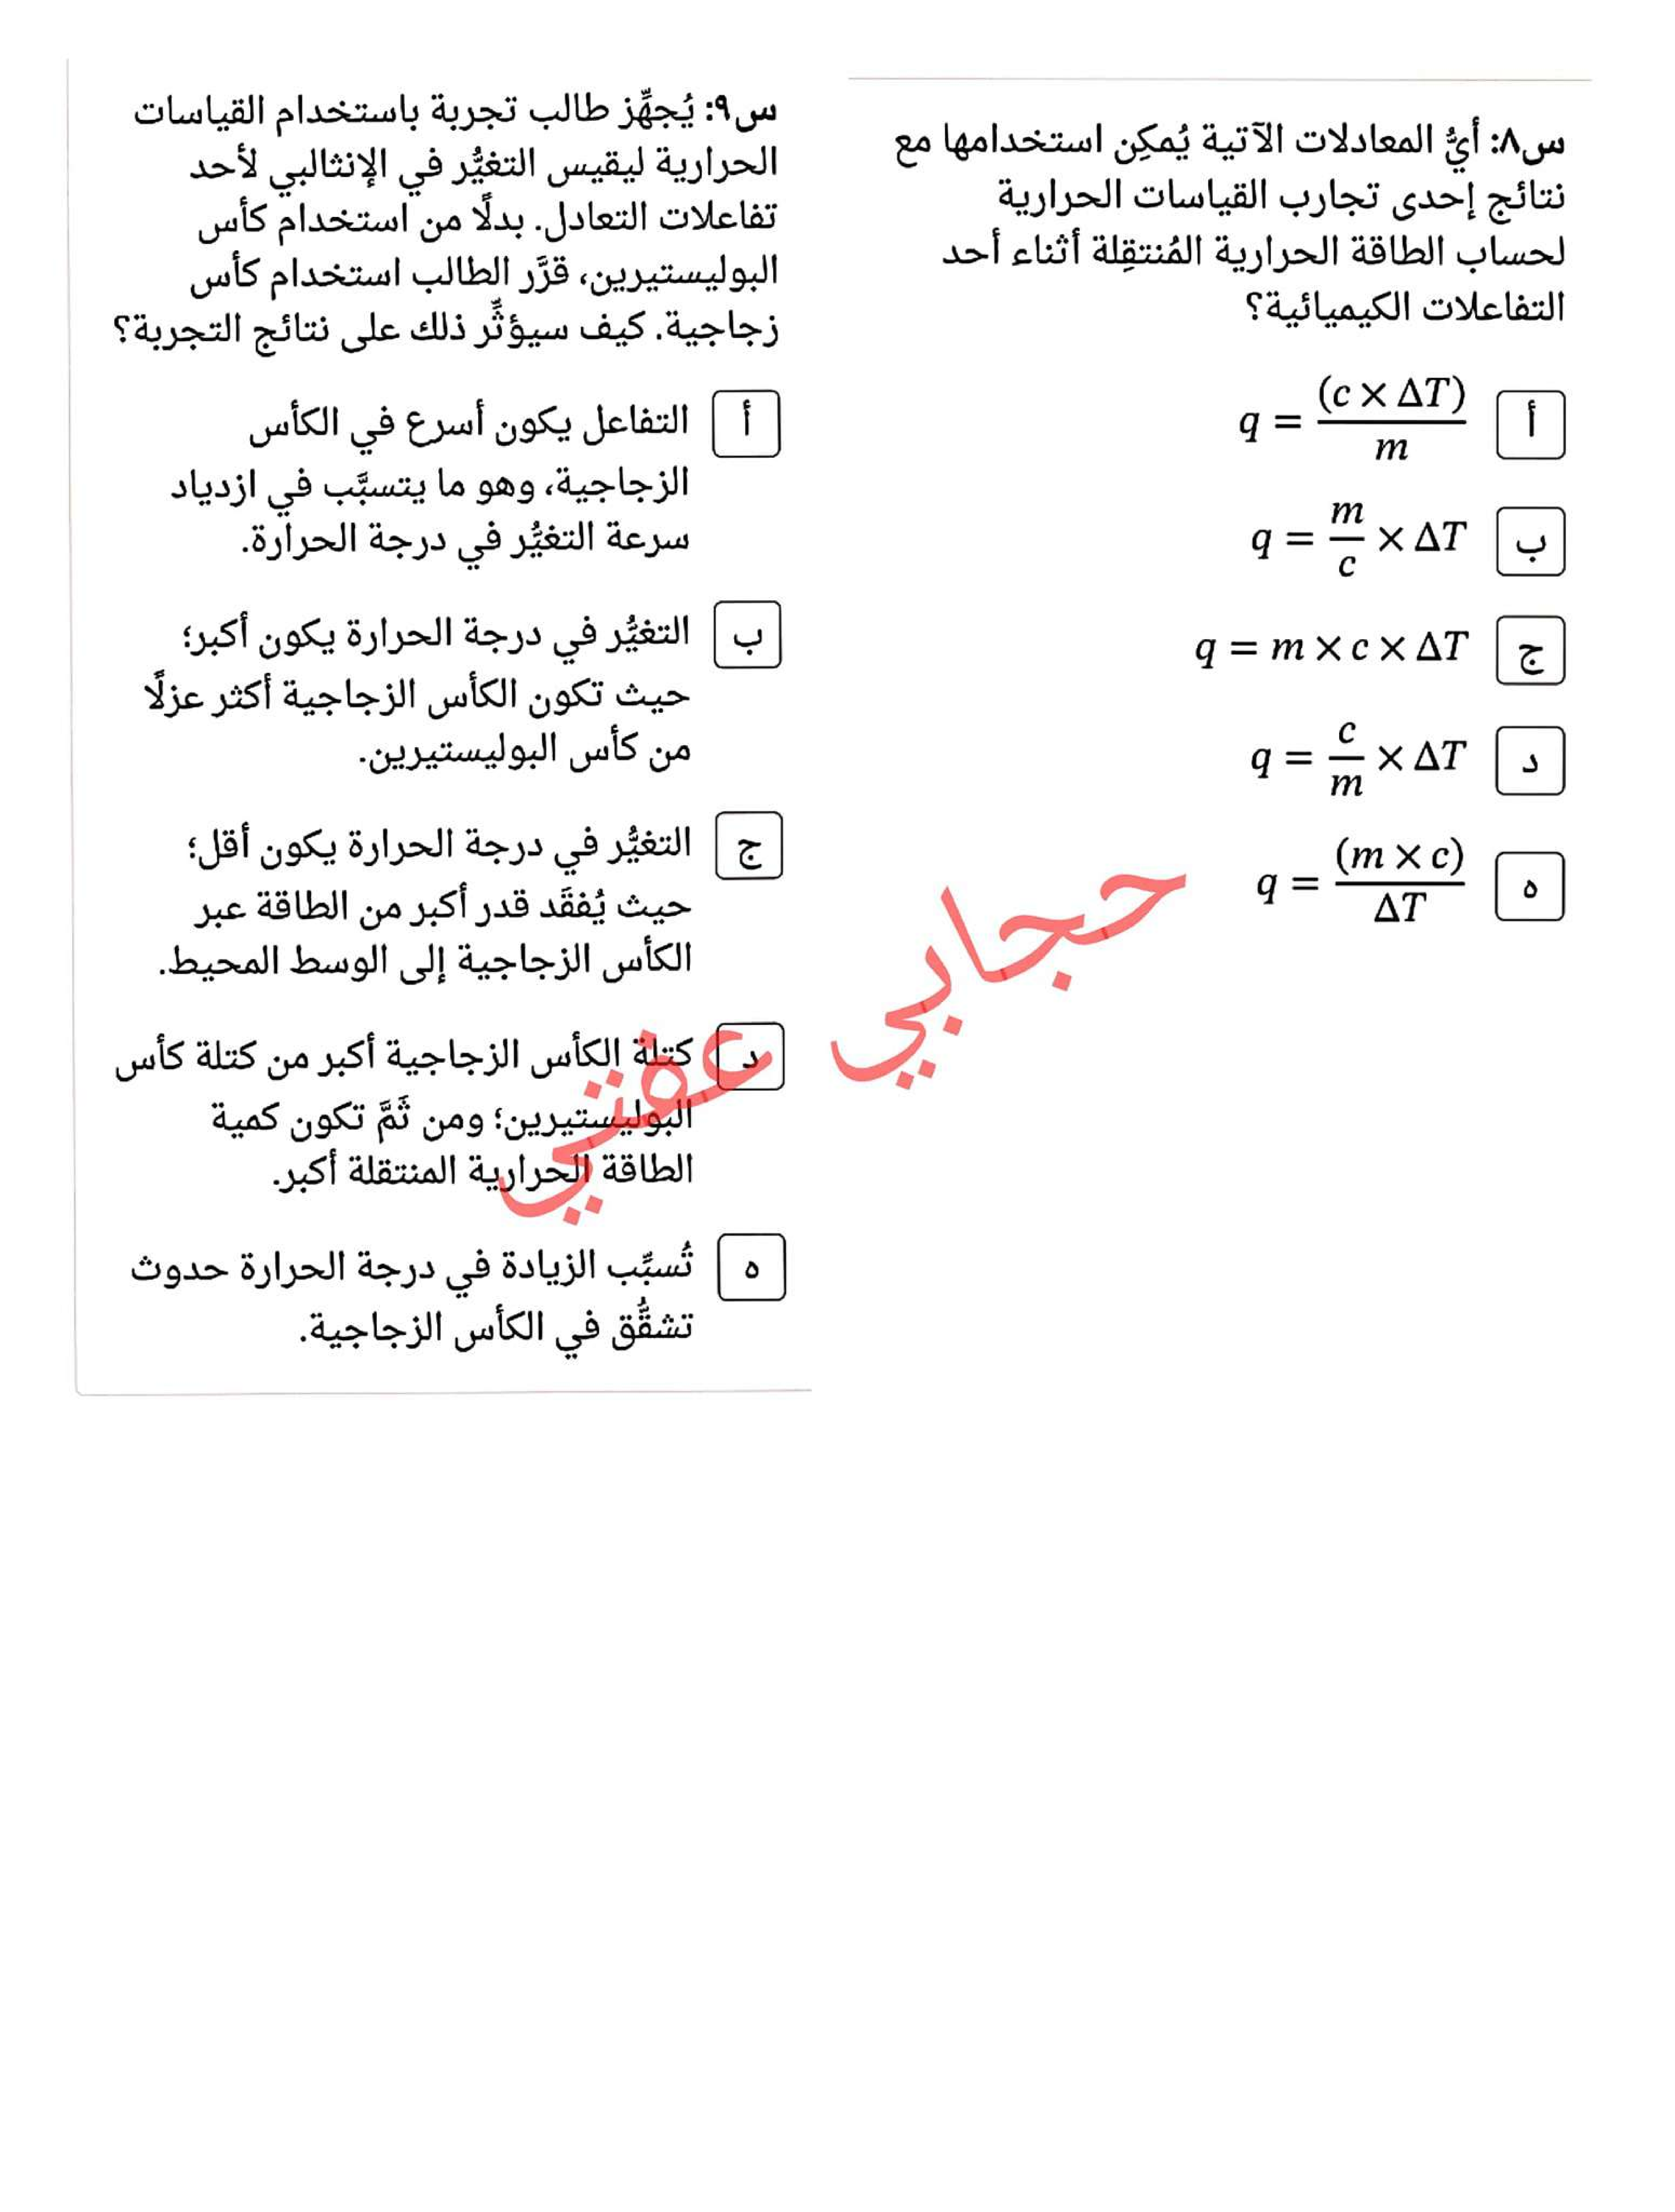 س٨: أيُّ المعادلات الآتية يُمكِن استخدامها مع
نتائج إحدى تجارب القياسات الحرارية
لحساب الطاقة الحرارية المُنتقِلة أثناء أحد
التفاعلات الكيميائية؟
أ q = (c × ΔT) / m
ب q = m/c × ΔT
ج q = m × c × ΔT
د q = c/m × ΔT
ه q = (m × c) / ΔT
س٩: يُجهِّز طالب تجربة باستخدام القياسات
الحرارية ليقيس التغيُّر في الإنثالبي لأحد
تفاعلات التعادل. بدلًا من استخدام كأس
البوليستيرين، قرَّر الطالب استخدام كأس
زجاجية. كيف سيؤثِّر ذلك على نتائج التجربة؟
أ التفاعل يكون أسرع في الكأس
الزجاجية، وهو ما يتسبَّب في ازدياد
سرعة التغيُّر في درجة الحرارة.
ب التغيُّر في درجة الحرارة يكون أكبر؛
حيث تكون الكأس الزجاجية أكثر عزلًا
من كأس البوليستيرين.
ج التغيُّر في درجة الحرارة يكون أقل؛
حيث يُفقَد قدر أكبر من الطاقة عبر
الكأس الزجاجية إلى الوسط المحيط.
د كتلة الكأس الزجاجية أكبر من كتلة كأس
البوليستيرين؛ ومن ثَمَّ تكون كمية
الطاقة الحرارية المنتقلة أكبر.
ه تُسبِّب الزيادة في درجة الحرارة حدوث
تشقُّق في الكأس الزجاجية.
حجابي عفتي